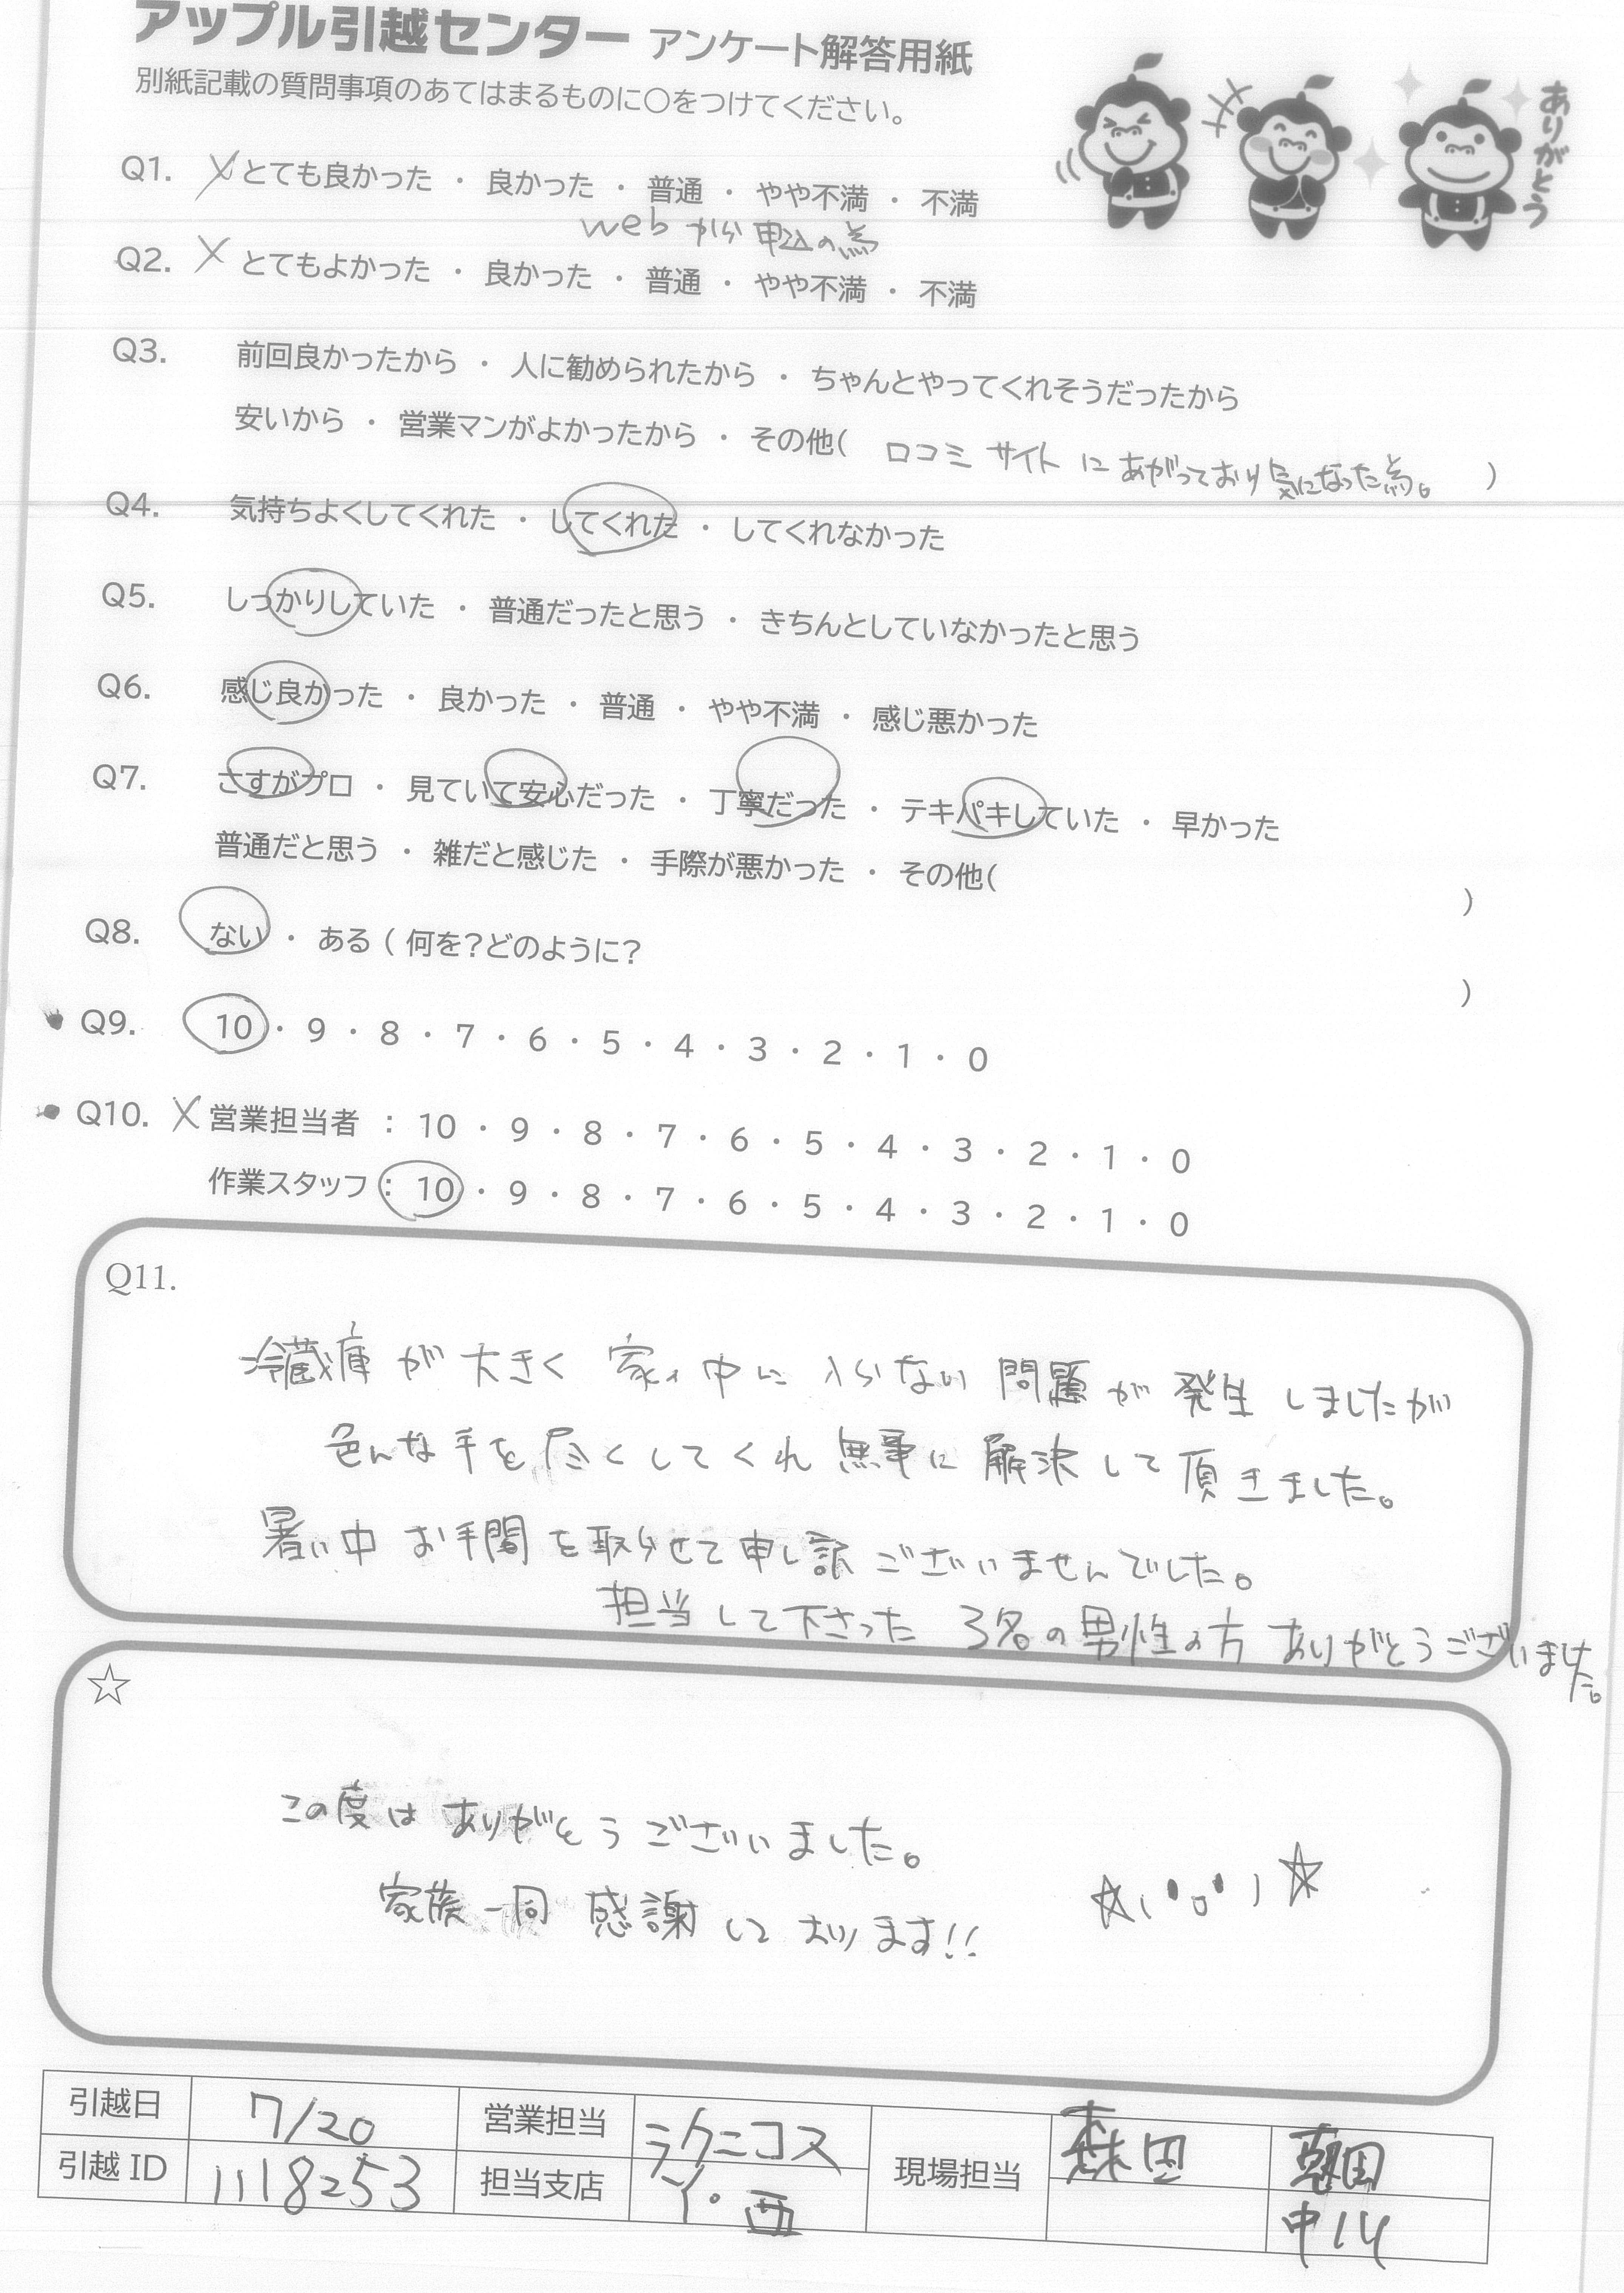 アップル引越センター アンケート解答用紙
別紙記載の質問事項のあてはまるものに○をつけてください。
ありがとう
Q1. ☓ とても良かった ・ 良かった ・ 普通 ・ やや不満 ・ 不満
webから申込の為
Q2. ☓ とてもよかった ・ 良かった ・ 普通 ・ やや不満 ・ 不満
Q3. 前回良かったから ・ 人に勧められたから ・ ちゃんとやってくれそうだったから
安いから ・ 営業マンがよかったから ・ その他( 口コミサイトにあがっており気になった為。 )
Q4. 気持ちよくしてくれた ・ してくれた ・ してくれなかった
Q5. しっかりしていた ・ 普通だったと思う ・ きちんとしていなかったと思う
Q6. 感じ良かった ・ 良かった ・ 普通 ・ やや不満 ・ 感じ悪かった
Q7. さすがプロ ・ 見ていて安心だった ・ 丁寧だった ・ テキパキしていた ・ 早かった
普通だと思う ・ 雑だと感じた ・ 手際が悪かった ・ その他( )
Q8. ない ・ ある ( 何を?どのように? )
Q9. 10 ・ 9 ・ 8 ・ 7 ・ 6 ・ 5 ・ 4 ・ 3 ・ 2 ・ 1 ・ 0
Q10. ☓ 営業担当者 : 10 ・ 9 ・ 8 ・ 7 ・ 6 ・ 5 ・ 4 ・ 3 ・ 2 ・ 1 ・ 0
作業スタッフ : 10 ・ 9 ・ 8 ・ 7 ・ 6 ・ 5 ・ 4 ・ 3 ・ 2 ・ 1 ・ 0
Q11.
冷蔵庫が大きく 家の中に入らない問題が発生しましたが
色んな手を尽くしてくれ無事に解決して頂きました。
暑い中お手間を取らせて申し訳ございませんでした。
担当して下さった 3名の男性の方 ありがとうございました。
☆
この度はありがとうございました。
家族一同 感謝しております!!
引越日 7/20 営業担当 ラクニコス 現場担当 森田
引越ID 1118253 担当支店 イ・西 中川